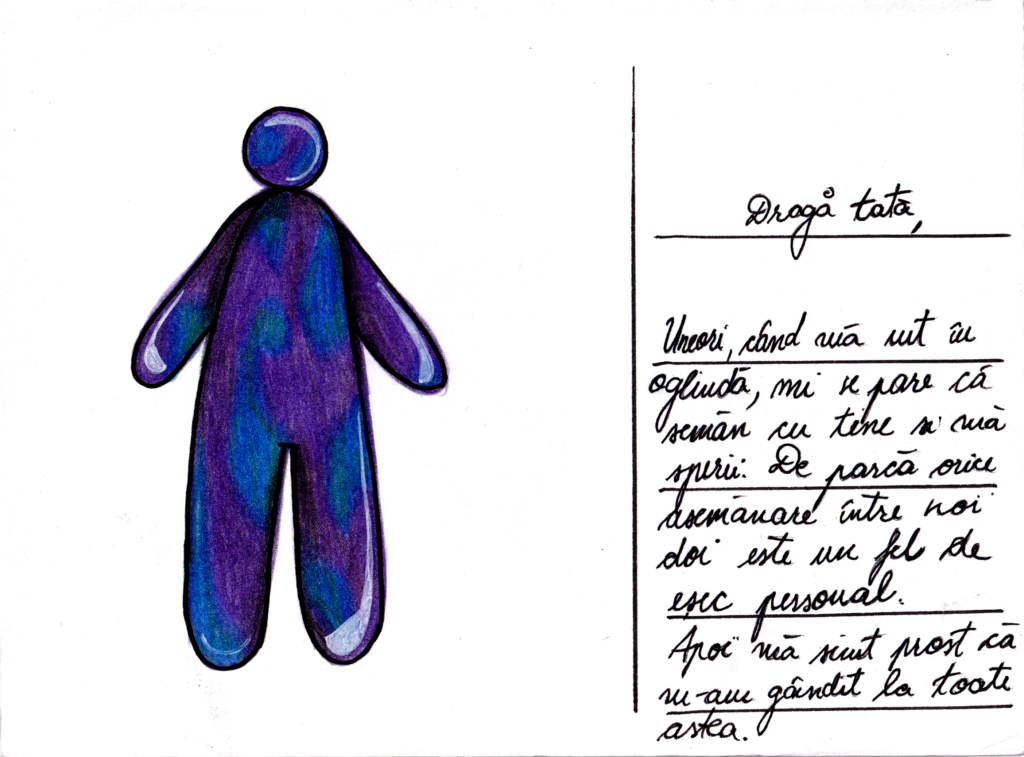 Dragă tată,
Uneori, când mă uit în
oglindă, mi se pare că
semăn cu tine și mă
sperii. De parcă orice
asemănare între noi
doi este un fel de
eșec personal.
Apoi mă simt prost că
m-am gândit la toate
astea.